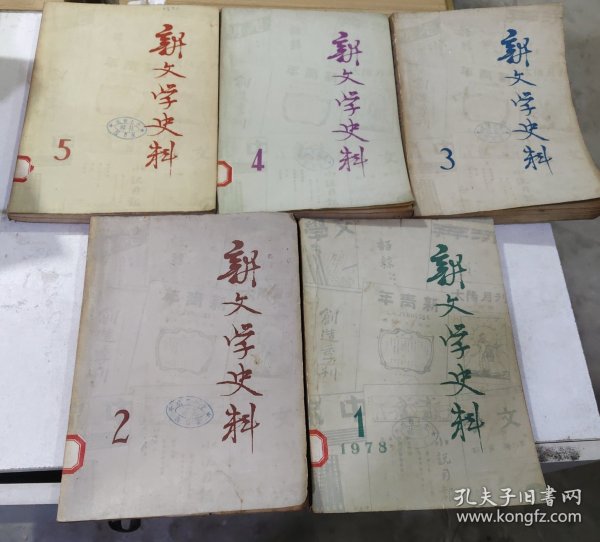 新文学史料
5
新文学史料
4
新文学史料
3
新文学史料
2
新文学史料
1
1978
新青年
創造季刊
小説月
孔夫子旧书网
www.kongfz.com